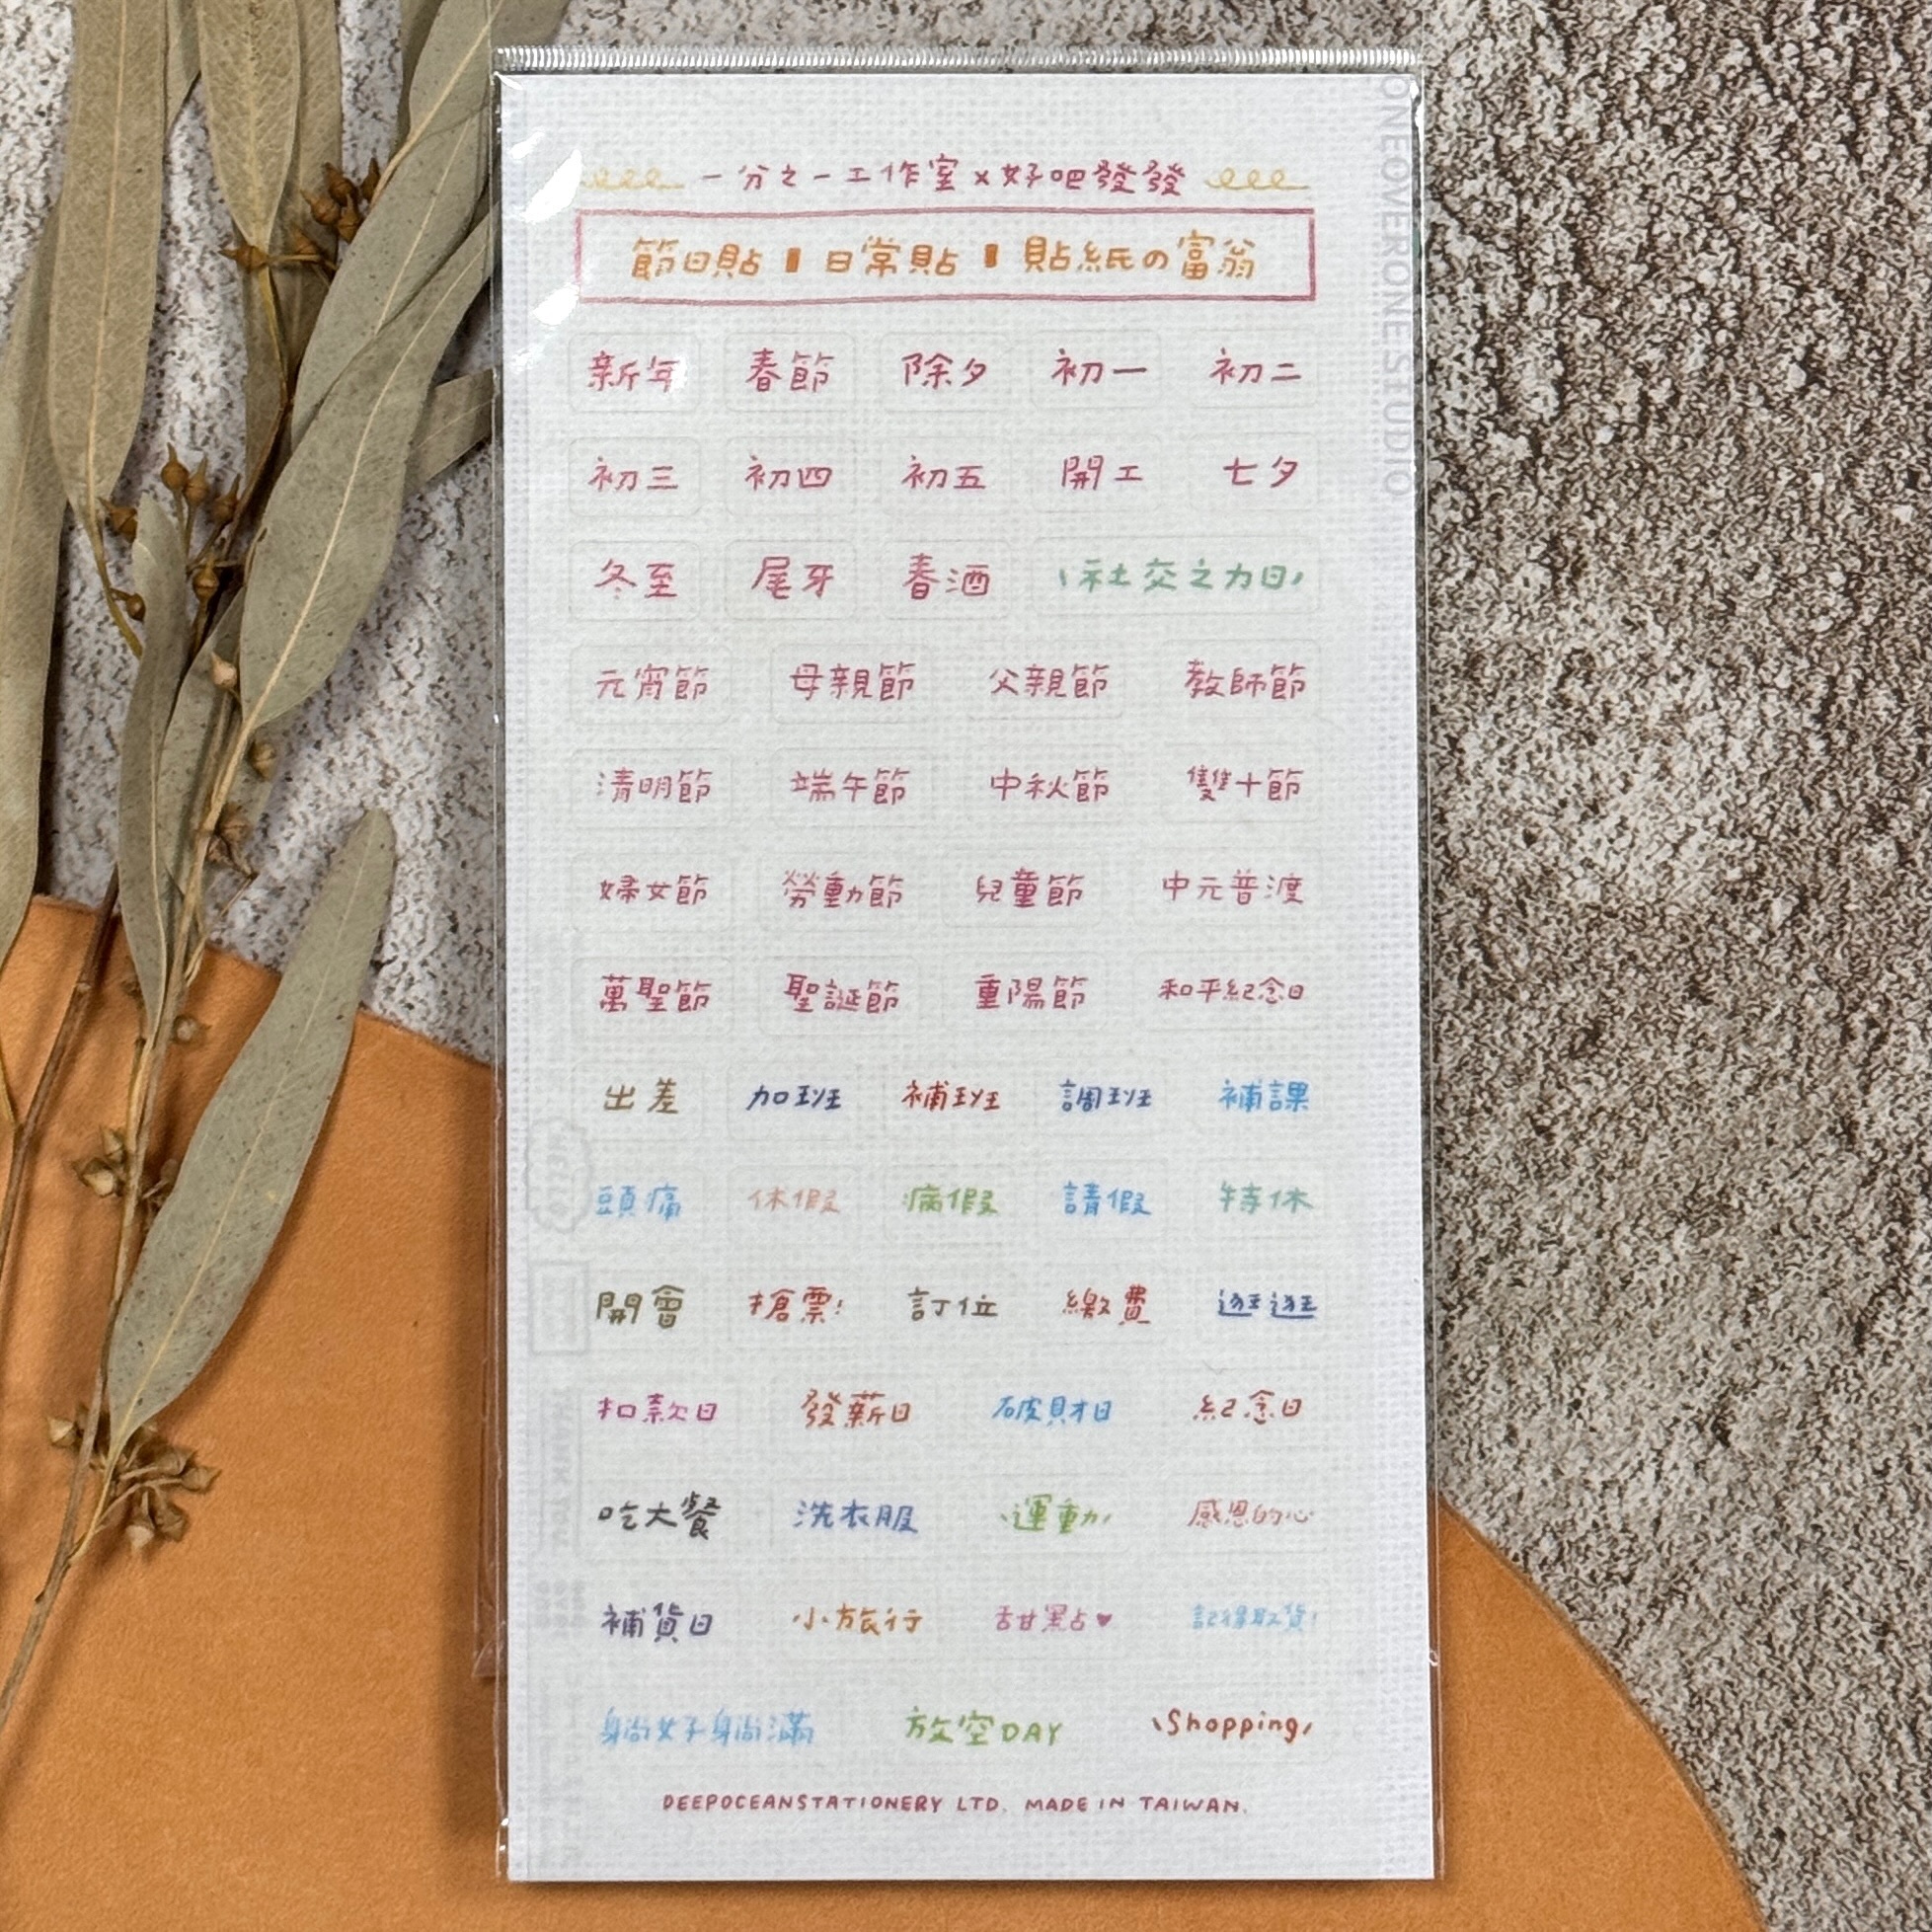 一分之一工作室x好吧發發
節日貼▮日常貼▮貼紙の富翁
新年 春節 除夕 初一 初二
初三 初四 初五 開工 七夕
冬至 尾牙 春酒 社交之力日
元宵節 母親節 父親節 教師節
清明節 端午節 中秋節 雙十節
婦女節 勞動節 兒童節 中元普渡
萬聖節 聖誕節 重陽節 和平紀念日
出差 加班 補班 調班 補課
頭痛 休假 病假 請假 特休
開會 搶票! 訂位 繳費 逛逛
扣款日 發薪日 破財日 紀念日
吃大餐 洗衣服 運動 感恩的心
補貨日 小旅行 甜點♥ 記得取貨!
躺好躺滿 放空DAY Shopping
DEEPOCEANSTATIONERY LTD. MADE IN TAIWAN.
ONEOVERONESTUDIO